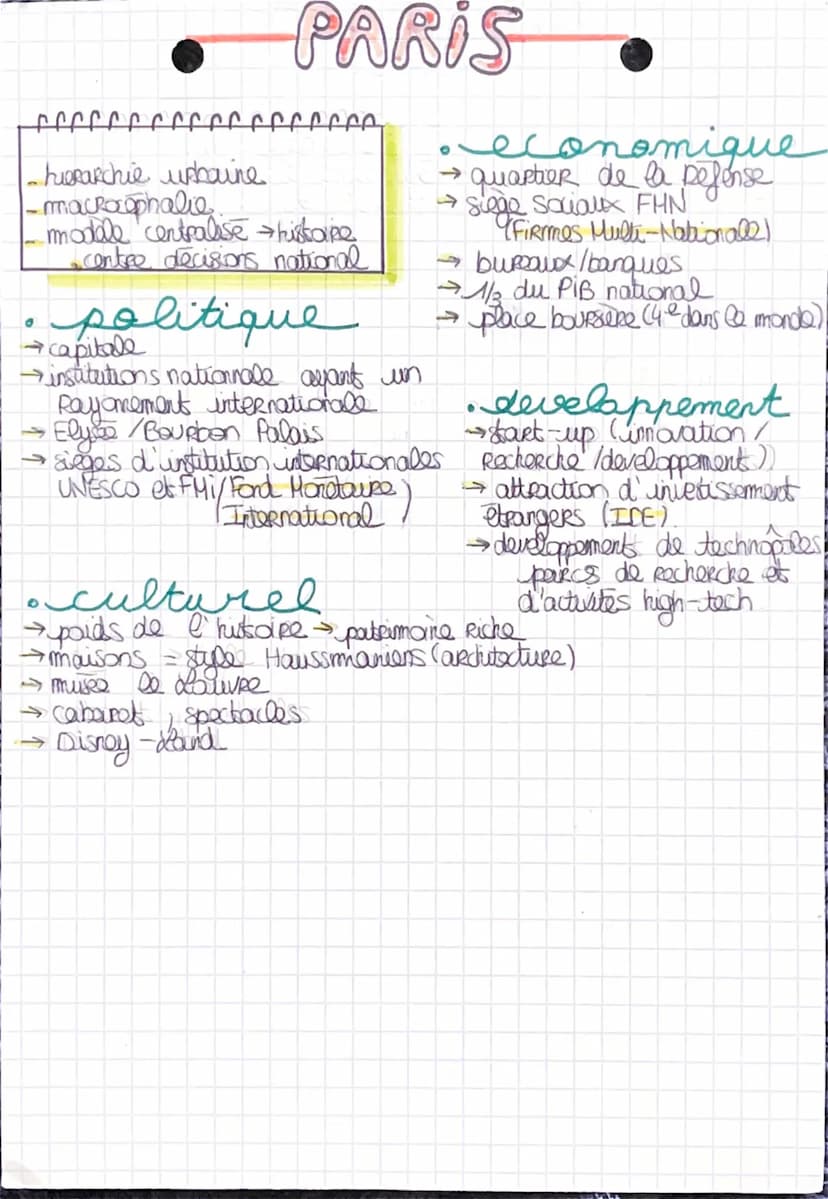 PARIS
- hierarchie urbaine
- macrocéphalie
- modèle centralisé → histoire
. centre décisions national
. politique
→ capitale
→ institutions nationnale ayant un
Rayonement internationale
→ Elysée / Bourbon Palais
→ sièges d'institution internationales
UNESCO et FMi / Fond Monétaire
International )
. culturel
→ poids de l'histoire → patrimoine Riche
→ maisons = style Haussmaniens (architecture)
→ musée le Louvre
→ cabaret, spectacles
→ Disney-Land
. economique
→ quartier de la Défense
→ siège sociaux FHN
(FiRmes Multi-Nationale)
→ bureaux/banques
→ 1/3 du PiB national
→ place boursière (4e dans le monde)
. developpement
→ start-up (innovation /
Recherche /developpement))
→ attraction d'invetissement
étrangers (IDE)
→ developpements de technopôles,
parcs de Recherche et
d'activités high-tech